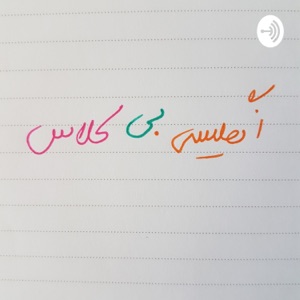 انگلیسی بی کلاس